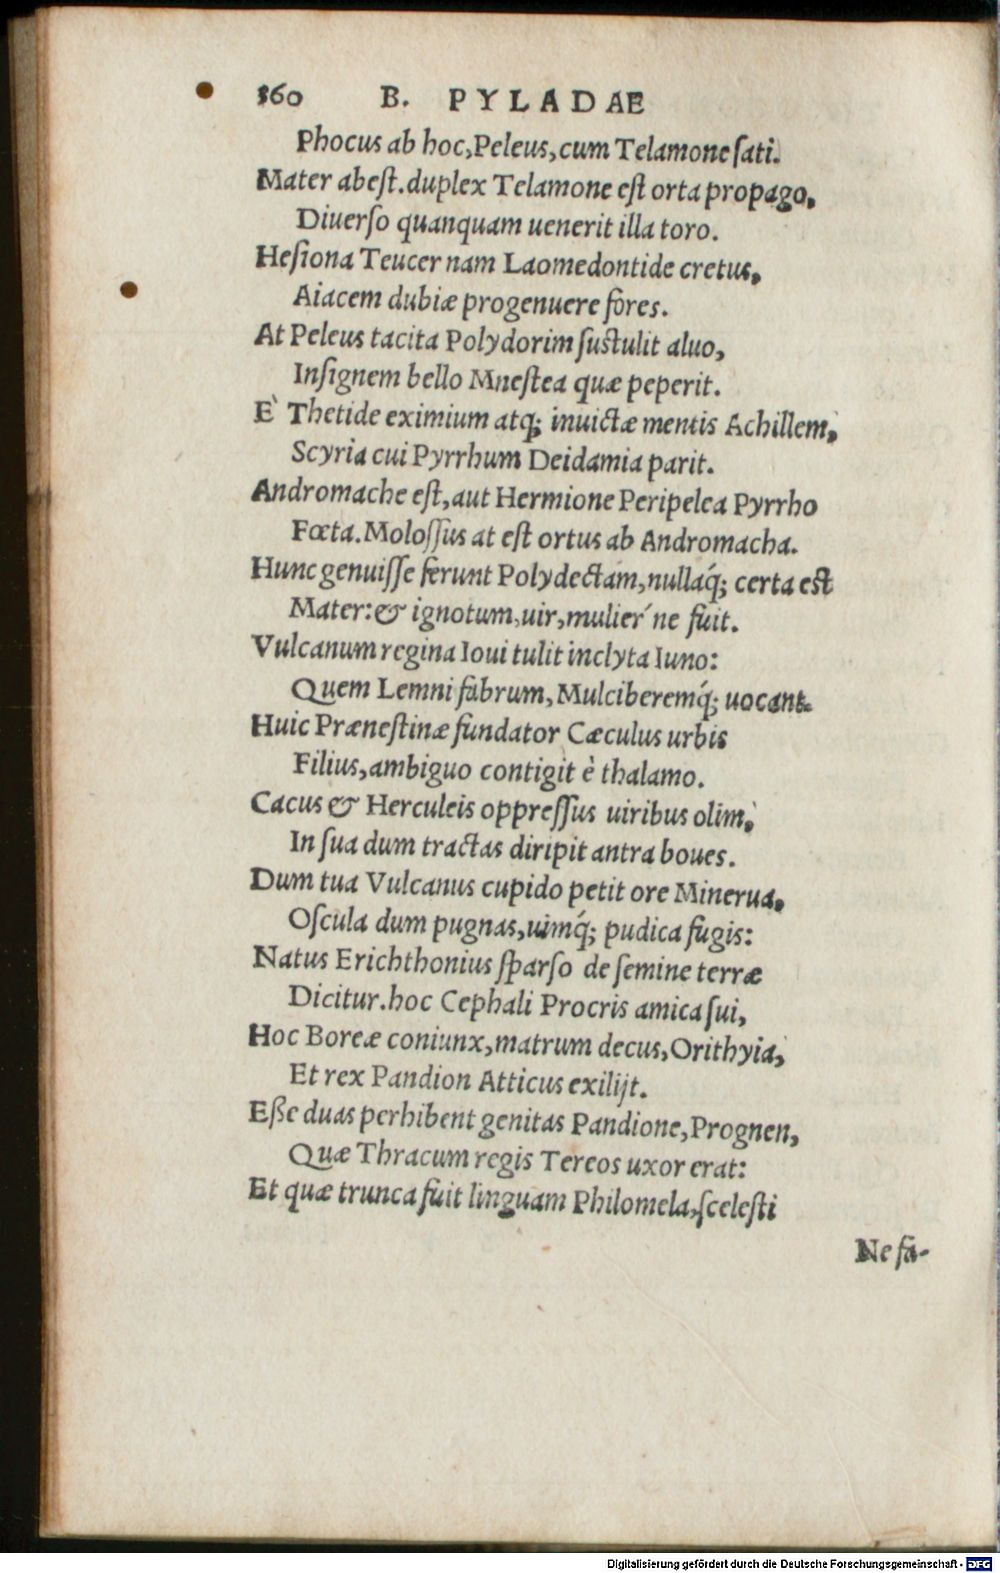 360 B. PYLADAE
Phocus ab hoc, Peleus, cum Telamone ſati.
Mater abeſt. duplex Telamone eſt orta propago,
Diuerſo quanquam uenerit illa toro.
Heſiona Teucer nam Laomedontide cretus,
Aiacem dubiæ progenuere fores.
At Peleus tacita Polydorim ſuſtulit aluo,
Inſignem bello Mneſtea quæ peperit.
E` Thetide eximium atq; inuictæ mentis Achillem,
Scyria cui Pyrrhum Deidamia parit.
Andromache eſt, aut Hermione Peripelea Pyrrho
Fœta. Moloſſus at eſt ortus ab Andromacha.
Hunc genuiſſe ferunt Polydectam, nullaq́; certa eſt
Mater: & ignotum, uir, mulier ́ne fuit.
Vulcanum regina Ioui tulit inclyta Iuno:
Quem Lemni fabrum, Mulciberemq́; uocant.
Huic Præneſtinæ fundator Cæculus urbis
Filius, ambiguo contigit è thalamo.
Cacus & Herculeis oppreſſus uiribus olim,
In ſua dum tractas diripit antra boues.
Dum tua Vulcanus cupido petit ore Minerua,
Oſcula dum pugnas, uimq́; pudica fugis:
Natus Erichthonius ſparſo de ſemine terræ
Dicitur. hoc Cephali Procris amica ſui,
Hoc Boreæ coniunx, matrum decus, Orithyia,
Et rex Pandion Atticus exilijt.
Eße duas perhibent genitas Pandione, Prognen,
Quæ Thracum regis Tereos uxor erat:
Et quæ trunca fuit linguam Philomela, ſceleſti
Ne fa-
Digitalisierung gefördert durch die Deutsche Forschungsgemeinschaft - DFG